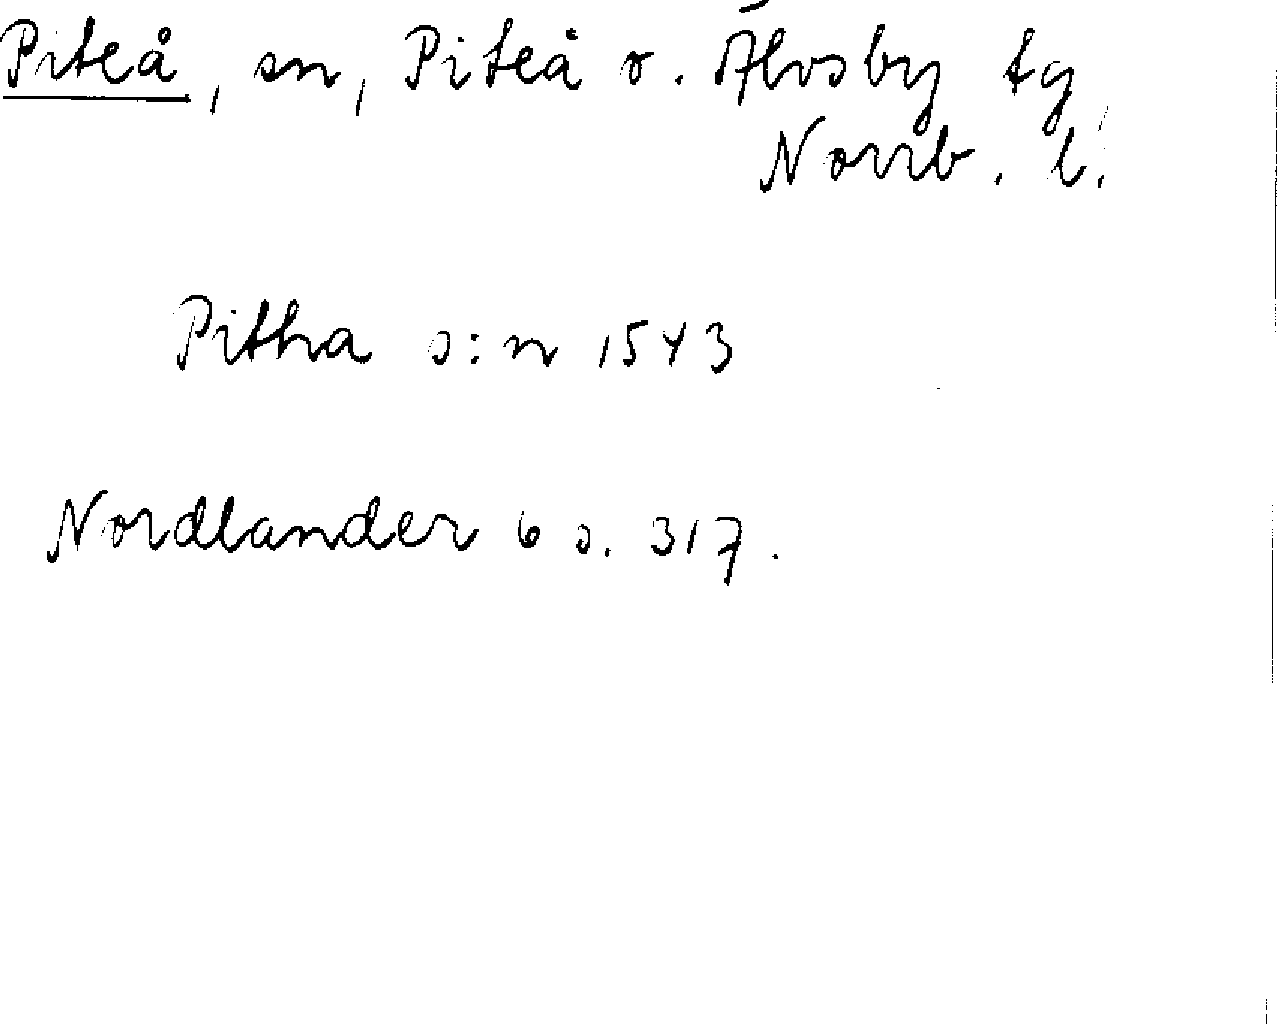 Piteå, sn, Piteå o. Älvsby tg
Norrb. l.
Pitha s:n 1543
Nordlander 6 s. 317.